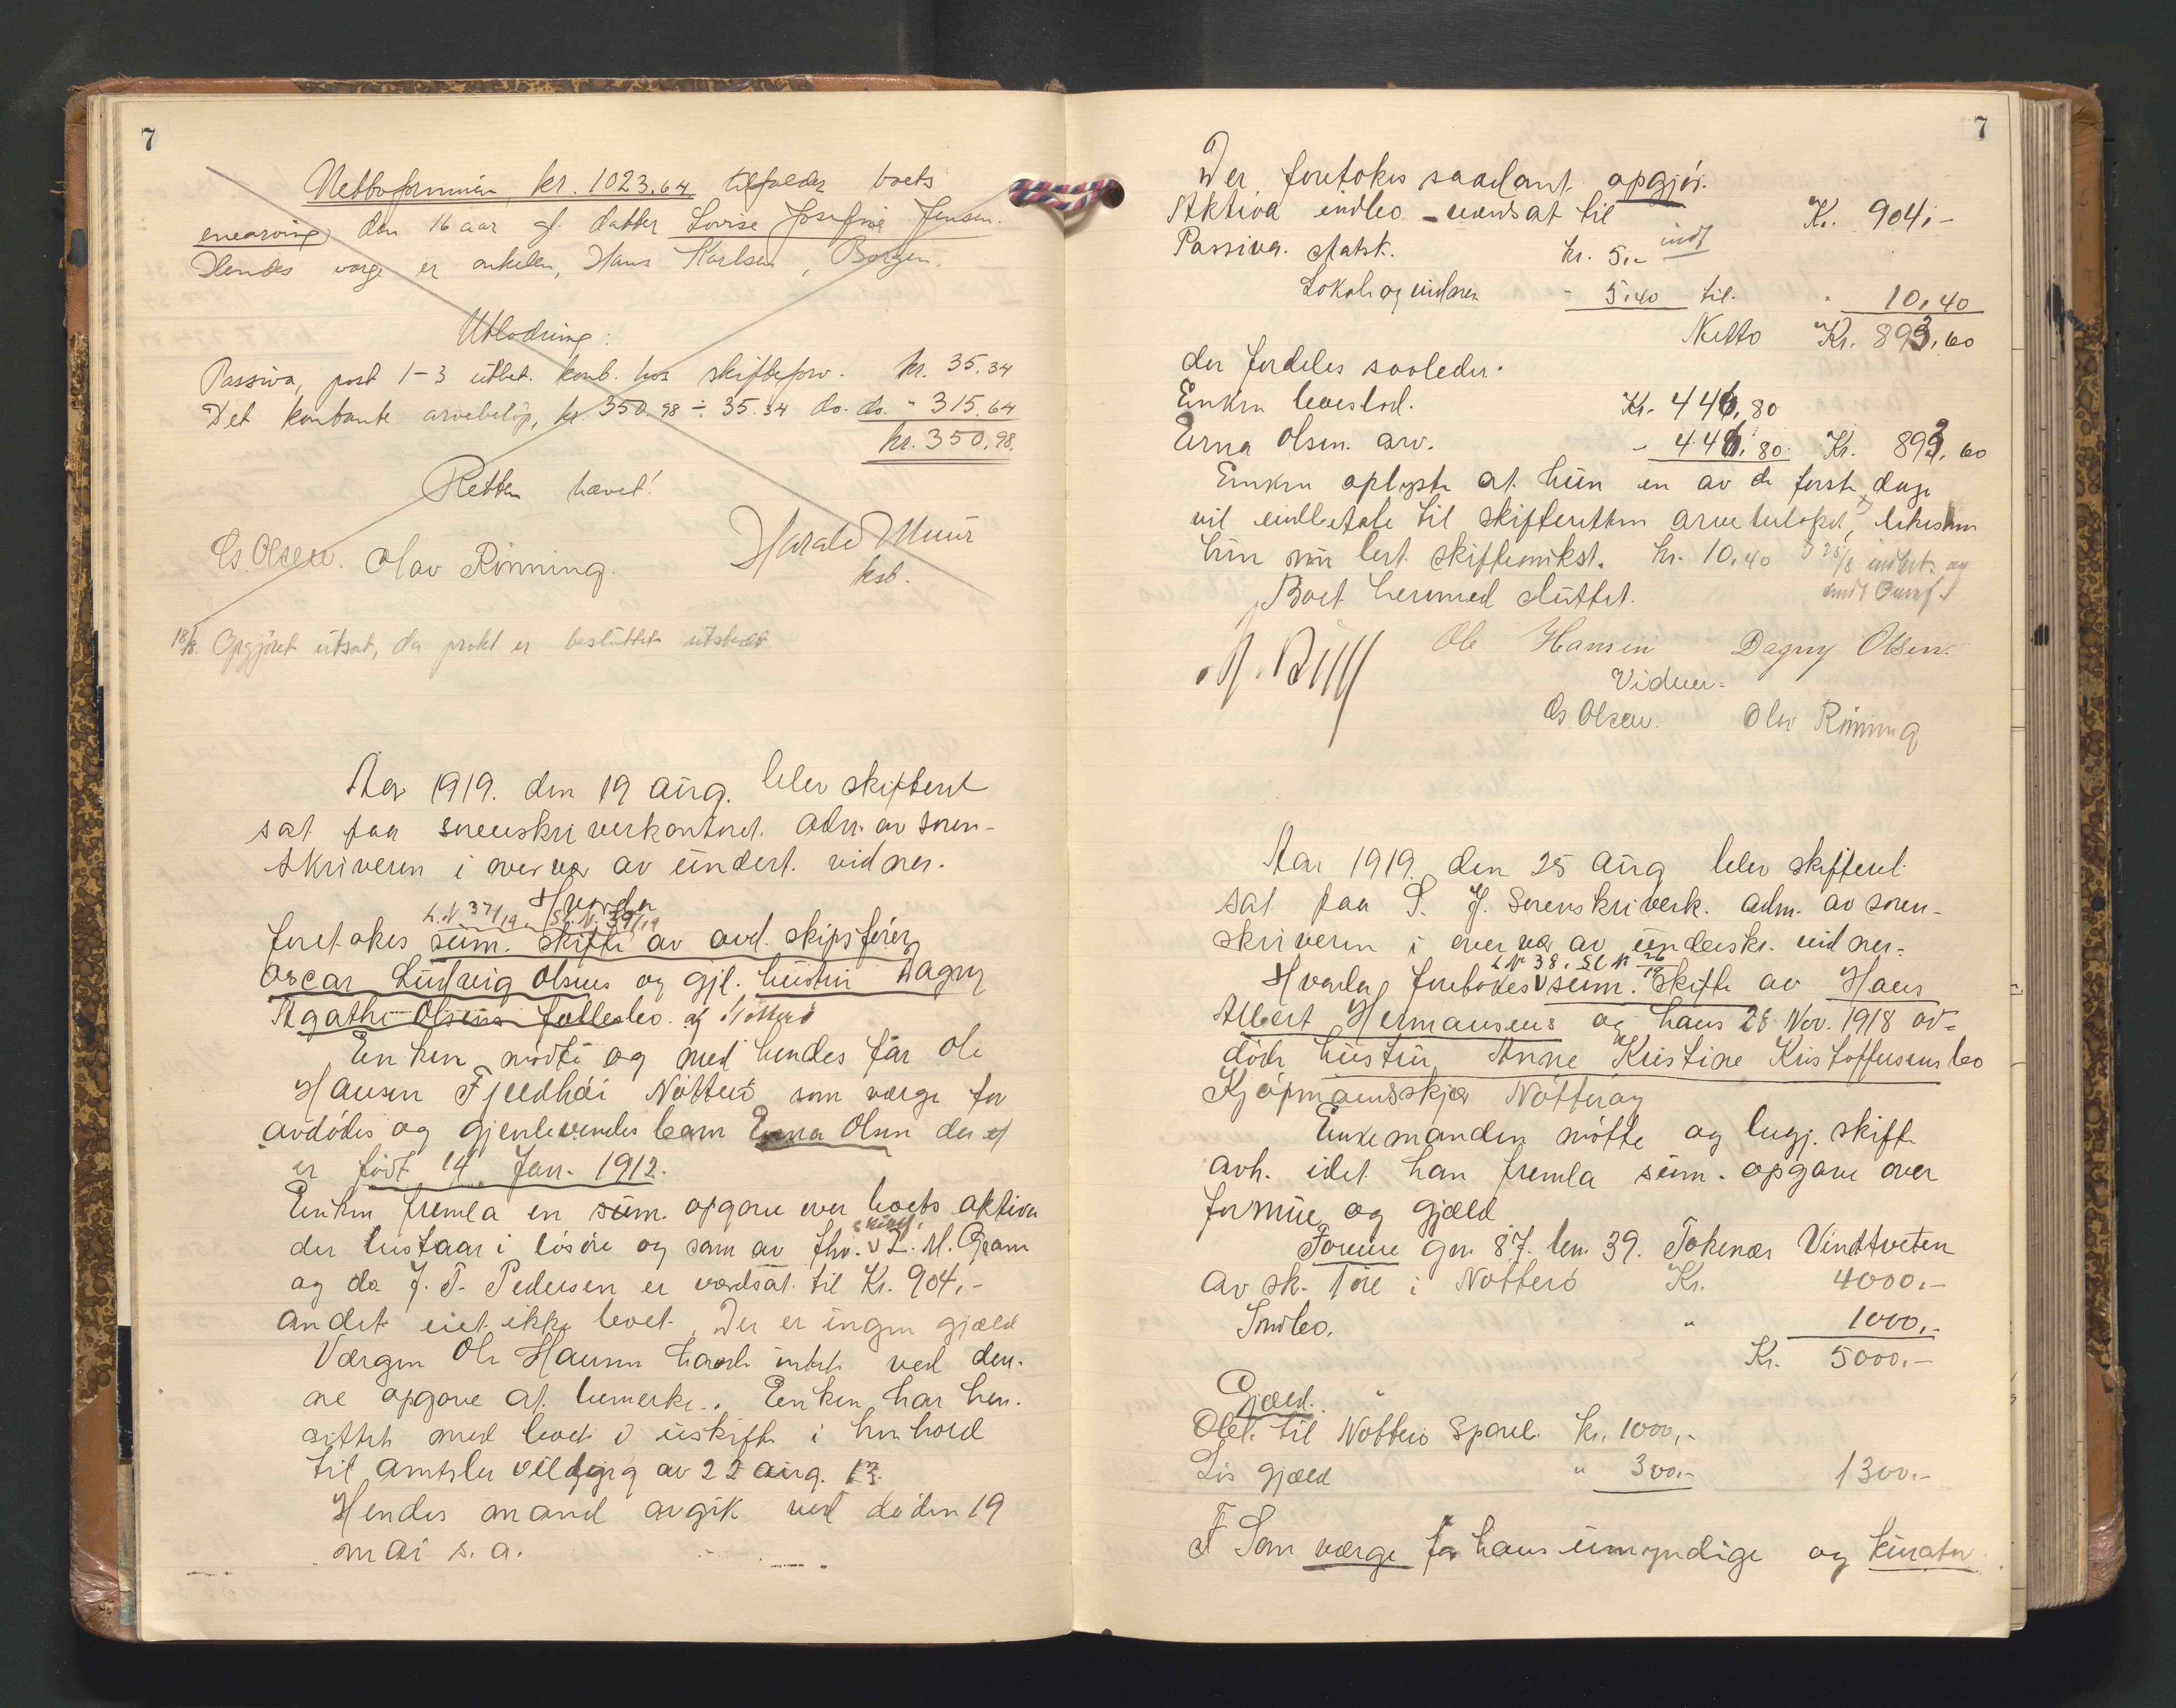 7
Nettoformuen, kr. 1023.64 tilfalder boets
enearving den 16 aar g. datter Lovise Josefine Jensen.
Hendes verge er onkelen, Hans Karlsen, Borgen.
Utlodning:
Passiva, post 1-3 utbet. kont. hos skifteforv. kr. 35.34
Det kontante arvebeløp, kr. 350.98 ÷ 35.34 do. do. " 315.64
kr. 350.98.
Retten hævet!
Cs. Olsen. Olav Rønning. Harald Muur
ksb.
18/8. Opgjøret utsat, da prokl er besluttet utstedt.
Aar 1919. den 19 aug. blev skifteret
sat paa sorenskriverkontoret adm. av soren-
skriveren i overvær av undert. vidner.
Hvorda
L.N 37/19 Sl. N. 39/19
foretokes sum. skifte av avd. skipsfører
Oscar Ludvig Olsens og gjl. hustru Dagny
Agathe Olsens fællesbo. af Nøtterø
Enken møtte og med hendes far Ole
Hansen Fjeldhøi Nøtterø som værge for
avdødes og gjenlevendes barn Erna Olsen der
er født 14 Jan. 1912.
Enken fremla en sum. opgave over boets aktiva
der bestaar i løsøre og som av fhv. L. M. Gram
og da J. T. Pedersen er værdsat til Kr. 904,-
andet eiet ikke boet. Der er ingen gjæld
Værgen Ole Hansen havde intet ved den-
ne opgave at bemerke. Enken har hen-
sittet med boet i uskifte i henhold
til amtsbevilling av 22 aug. 13.
Hendes mand avgik ved døden 19
mai s. a.
7
Der foretokes saadant opgjør.
Aktiva indbo - værdsat til Kr. 904,-
Passiva. Statsk. kr. 5,- indf
Lokale og vidner - 5,40 til " 10,40
Netto Kr. 893,60
der fordeles saaledes.
Enken boeslod. Kr. 446,80
Erna Olsen arv. - 446,80 Kr. 893,60
Enken oplyste at hun en av de første dage
vil indbetale til skifteretten arvebeløpet, likesom
hun nu bet. skifteomkst. kr. 10,40 25/8 indbet. og
indf
Boet hermed sluttet.
Ole Hansen Dagny Olsen.
Vidner:
Cs. Olsen. Olav Rønning
Aar 1919. den 25 aug blev skifteret
sat paa S. J. Sorenskriverk. adm. av soren-
skriveren i overvær av underskr. vidner.
L N 38. Sl N 26/19
Hvorda foretokes sum. skifte av Hans
Albert Hermansens og hans 28 Nov. 1918 av-
døde hustru Anne Kristine Kristoffersens bo
Kjøpmandsskjær Nøtterøy
Enkemanden møtte og begj. skifte
avh. idet han fremla sum. opgave over
formue og gjæld
Formue gnr. 87. bnr. 39. Tokenæs Vindtveten
av sk. 1 øre i Nøtterø Kr. 4000.-
Indbo. " 1000.-
Kr. 5000.-
Gjæld.
Obl. til Nøtterø Spareb. kr. 1000,-
Løs gjæld " 300.- 1300.-
Som værge for hans umyndige og kurator